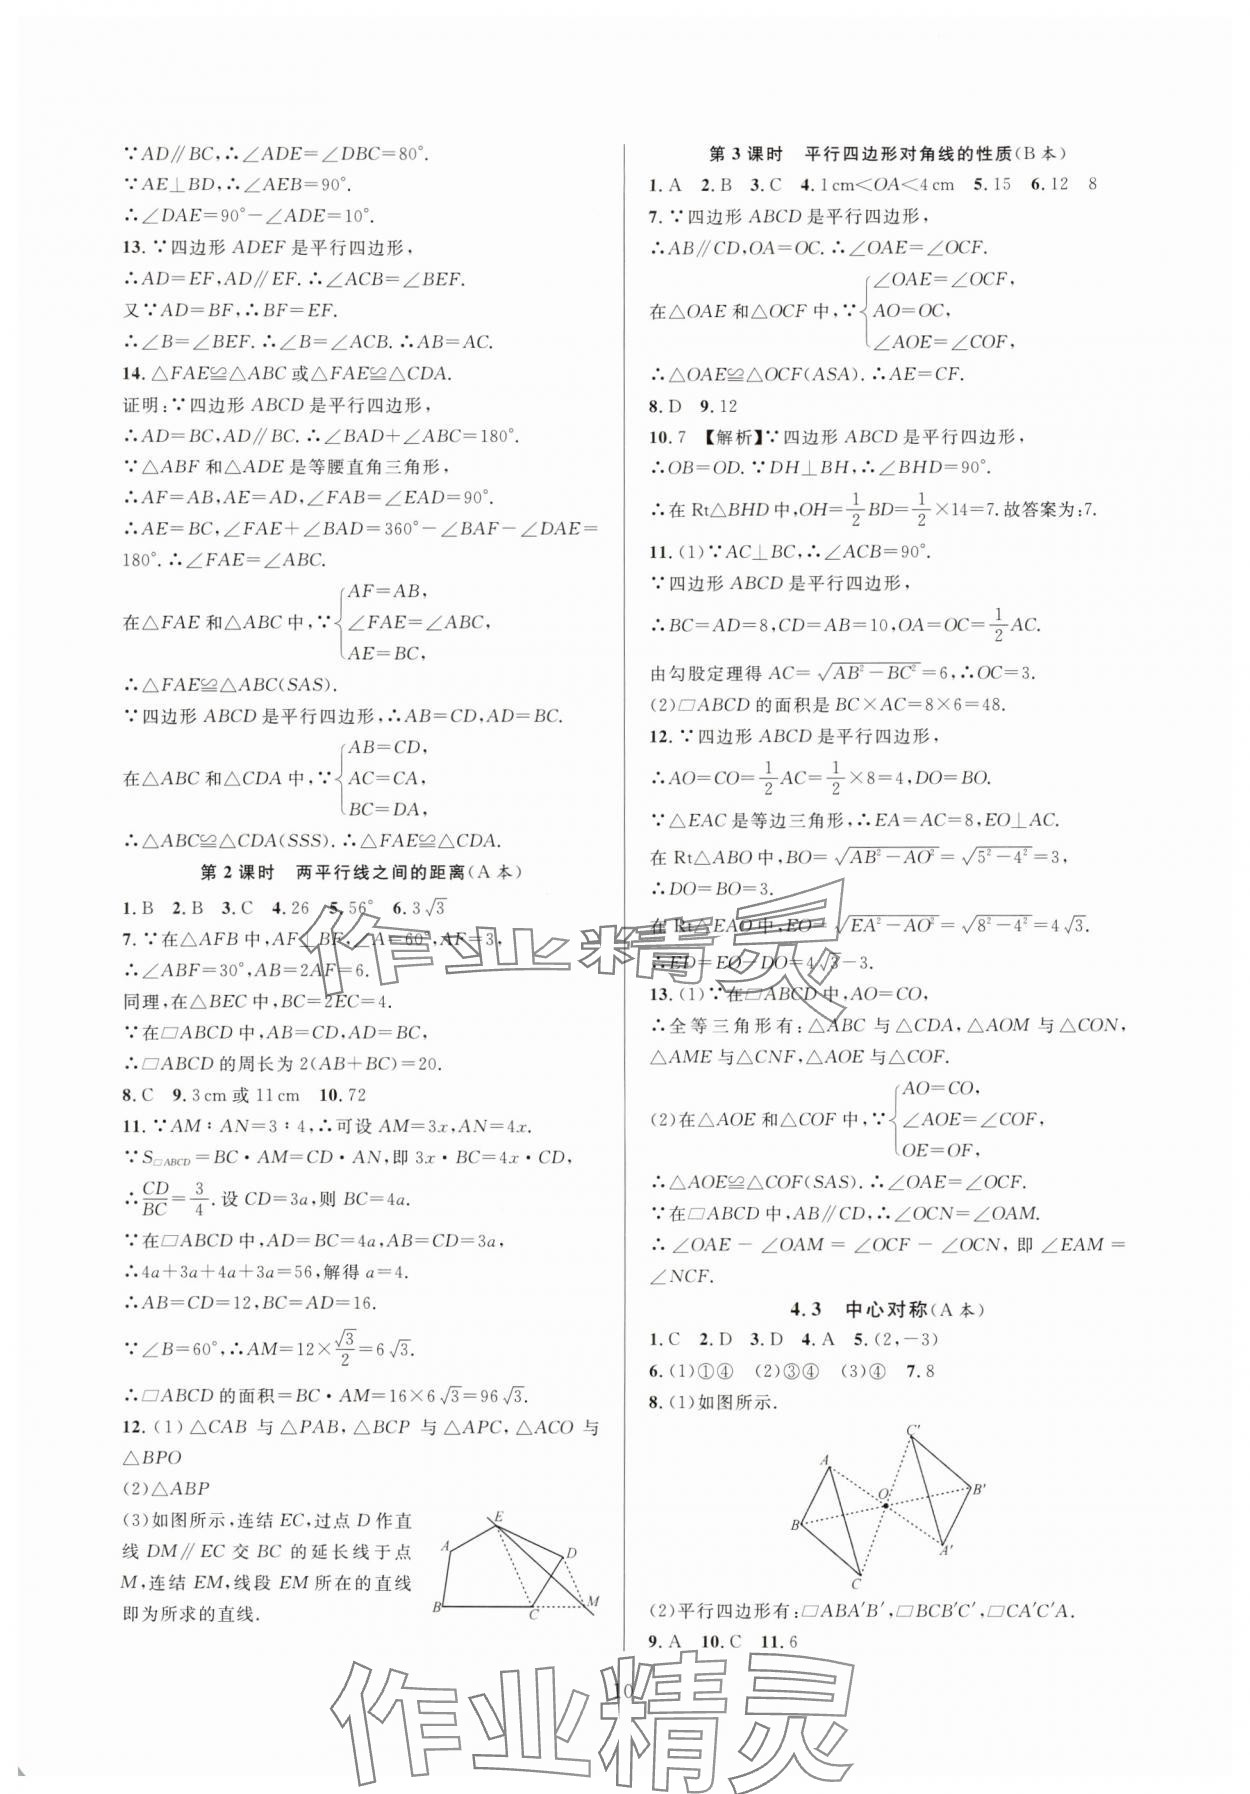 ∵AD∥BC,∴∠ADE=∠DBC=80°.
∵AE⊥BD,∴∠AEB=90°.
∴∠DAE=90°-∠ADE=10°.
13.∵四边形 ADEF 是平行四边形,
∴AD=EF,AD∥EF.∴∠ACB=∠BEF.
又∵AD=BF,∴BF=EF.
∴∠B=∠BEF.∴∠B=∠ACB.∴AB=AC.
14.△FAE≌△ABC 或△FAE≌△CDA.
证明:∵四边形 ABCD 是平行四边形,
∴AD=BC,AD∥BC.∴∠BAD+∠ABC=180°.
∵△ABF 和△ADE 是等腰直角三角形,
∴AF=AB,AE=AD,∠FAB=∠EAD=90°.
∴AE=BC,∠FAE+∠BAD=360°-∠BAF-∠DAE=
180°.∴∠FAE=∠ABC.
在△FAE 和△ABC 中,∵{AF=AB,
∠FAE=∠ABC,
AE=BC,
∴△FAE≌△ABC(SAS).
∵四边形 ABCD 是平行四边形,∴AB=CD,AD=BC.
在△ABC 和△CDA 中,∵{AB=CD,
AC=CA,
BC=DA,
∴△ABC≌△CDA(SSS).∴△FAE≌△CDA.
第 2 课时 两平行线之间的距离(A 本)
1.B 2.B 3.C 4.26 5.56° 6.3√3
7.∵在△AFB 中,AF⊥BF,∠A=60°,AF=3,
∴∠ABF=30°,AB=2AF=6.
同理,在△BEC 中,BC=2EC=4.
∵在□ABCD 中,AB=CD,AD=BC,
∴□ABCD 的周长为 2(AB+BC)=20.
8.C 9.3 cm 或 11 cm 10.72
11.∵AM∶AN=3∶4,∴可设 AM=3x,AN=4x.
∵S□ABCD=BC·AM=CD·AN,即 3x·BC=4x·CD,
∴CD/BC=3/4.设 CD=3a,则 BC=4a.
∵在□ABCD 中,AD=BC=4a,AB=CD=3a,
∴4a+3a+4a+3a=56,解得 a=4.
∴AB=CD=12,BC=AD=16.
∵∠B=60°,∴AM=12×√3/2=6√3.
∴□ABCD 的面积=BC·AM=16×6√3=96√3.
12.(1)△CAB 与△PAB,△BCP 与△APC,△ACO 与
△BPO
(2)△ABP
(3)如图所示,连结 EC,过点 D 作直
线 DM∥EC 交 BC 的延长线于点
M,连结 EM,线段 EM 所在的直线
即为所求的直线.
E
A
D
B
C
M
第 3 课时 平行四边形对角线的性质(B 本)
1.A 2.B 3.C 4.1 cm<OA<4 cm 5.15 6.12 8
7.∵四边形 ABCD 是平行四边形,
∴AB∥CD,OA=OC.∴∠OAE=∠OCF.
在△OAE 和△OCF 中,∵{∠OAE=∠OCF,
AO=OC,
∠AOE=∠COF,
∴△OAE≌△OCF(ASA).∴AE=CF.
8.D 9.12
10.7 【解析】∵四边形 ABCD 是平行四边形,
∴OB=OD.∵DH⊥BH,∴∠BHD=90°.
∴在 Rt△BHD 中,OH=1/2BD=1/2×14=7.故答案为:7.
11.(1)∵AC⊥BC,∴∠ACB=90°.
∵四边形 ABCD 是平行四边形,
∴BC=AD=8,CD=AB=10,OA=OC=1/2AC.
由勾股定理得 AC=√(AB²-BC²)=6,∴OC=3.
(2)□ABCD 的面积是 BC×AC=8×6=48.
12.∵四边形 ABCD 是平行四边形,
∴AO=CO=1/2AC=1/2×8=4,DO=BO.
∵△EAC 是等边三角形,∴EA=AC=8,EO⊥AC.
在 Rt△ABO 中,BO=√(AB²-AO²)=√(5²-4²)=3,
∴DO=BO=3.
在 Rt△EAO 中,EO=√(EA²-AO²)=√(8²-4²)=4√3.
∴ED=EO-DO=4√3-3.
13.(1)∵在□ABCD 中,AO=CO,
∴全等三角形有:△ABC 与△CDA,△AOM 与△CON,
△AME 与△CNF,△AOE 与△COF.
(2)在△AOE 和△COF 中,∵{AO=CO,
∠AOE=∠COF,
OE=OF,
∴△AOE≌△COF(SAS).∴∠OAE=∠OCF.
∵在□ABCD 中,AB∥CD,∴∠OCN=∠OAM.
∴∠OAE-∠OAM=∠OCF-∠OCN,即∠EAM=
∠NCF.
4.3 中心对称(A 本)
1.C 2.D 3.D 4.A 5.(2,-3)
6.(1)①④ (2)③④ (3)④ 7.8
8.(1)如图所示.
C′
A
B′
O
B
A′
C
(2)平行四边形有:□ABA′B′,□BCB′C′,□CA′C′A.
9.A 10.C 11.6
10
作业精灵
作业精灵